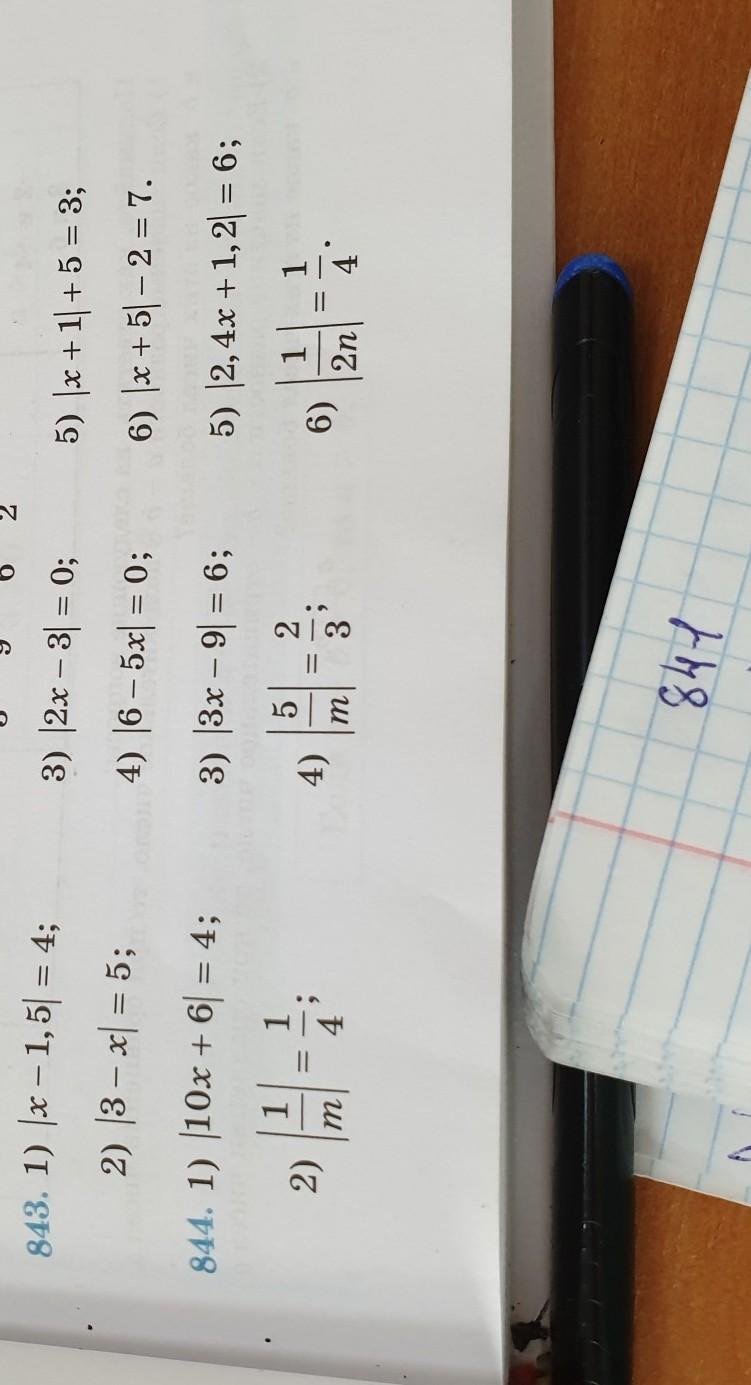 843. 1) |x − 1,5| = 4; 3) |2x − 3| = 0; 5) |x + 1| + 5 = 3;
2) |3 − x| = 5; 4) |6 − 5x| = 0; 6) |x + 5| − 2 = 7.
844. 1) |10x + 6| = 4; 3) |3x − 9| = 6; 5) |2,4x + 1,2| = 6;
2) |1/m| = 1/4; 4) |5/m| = 2/3; 6) |1/2n| = 1/4.
841